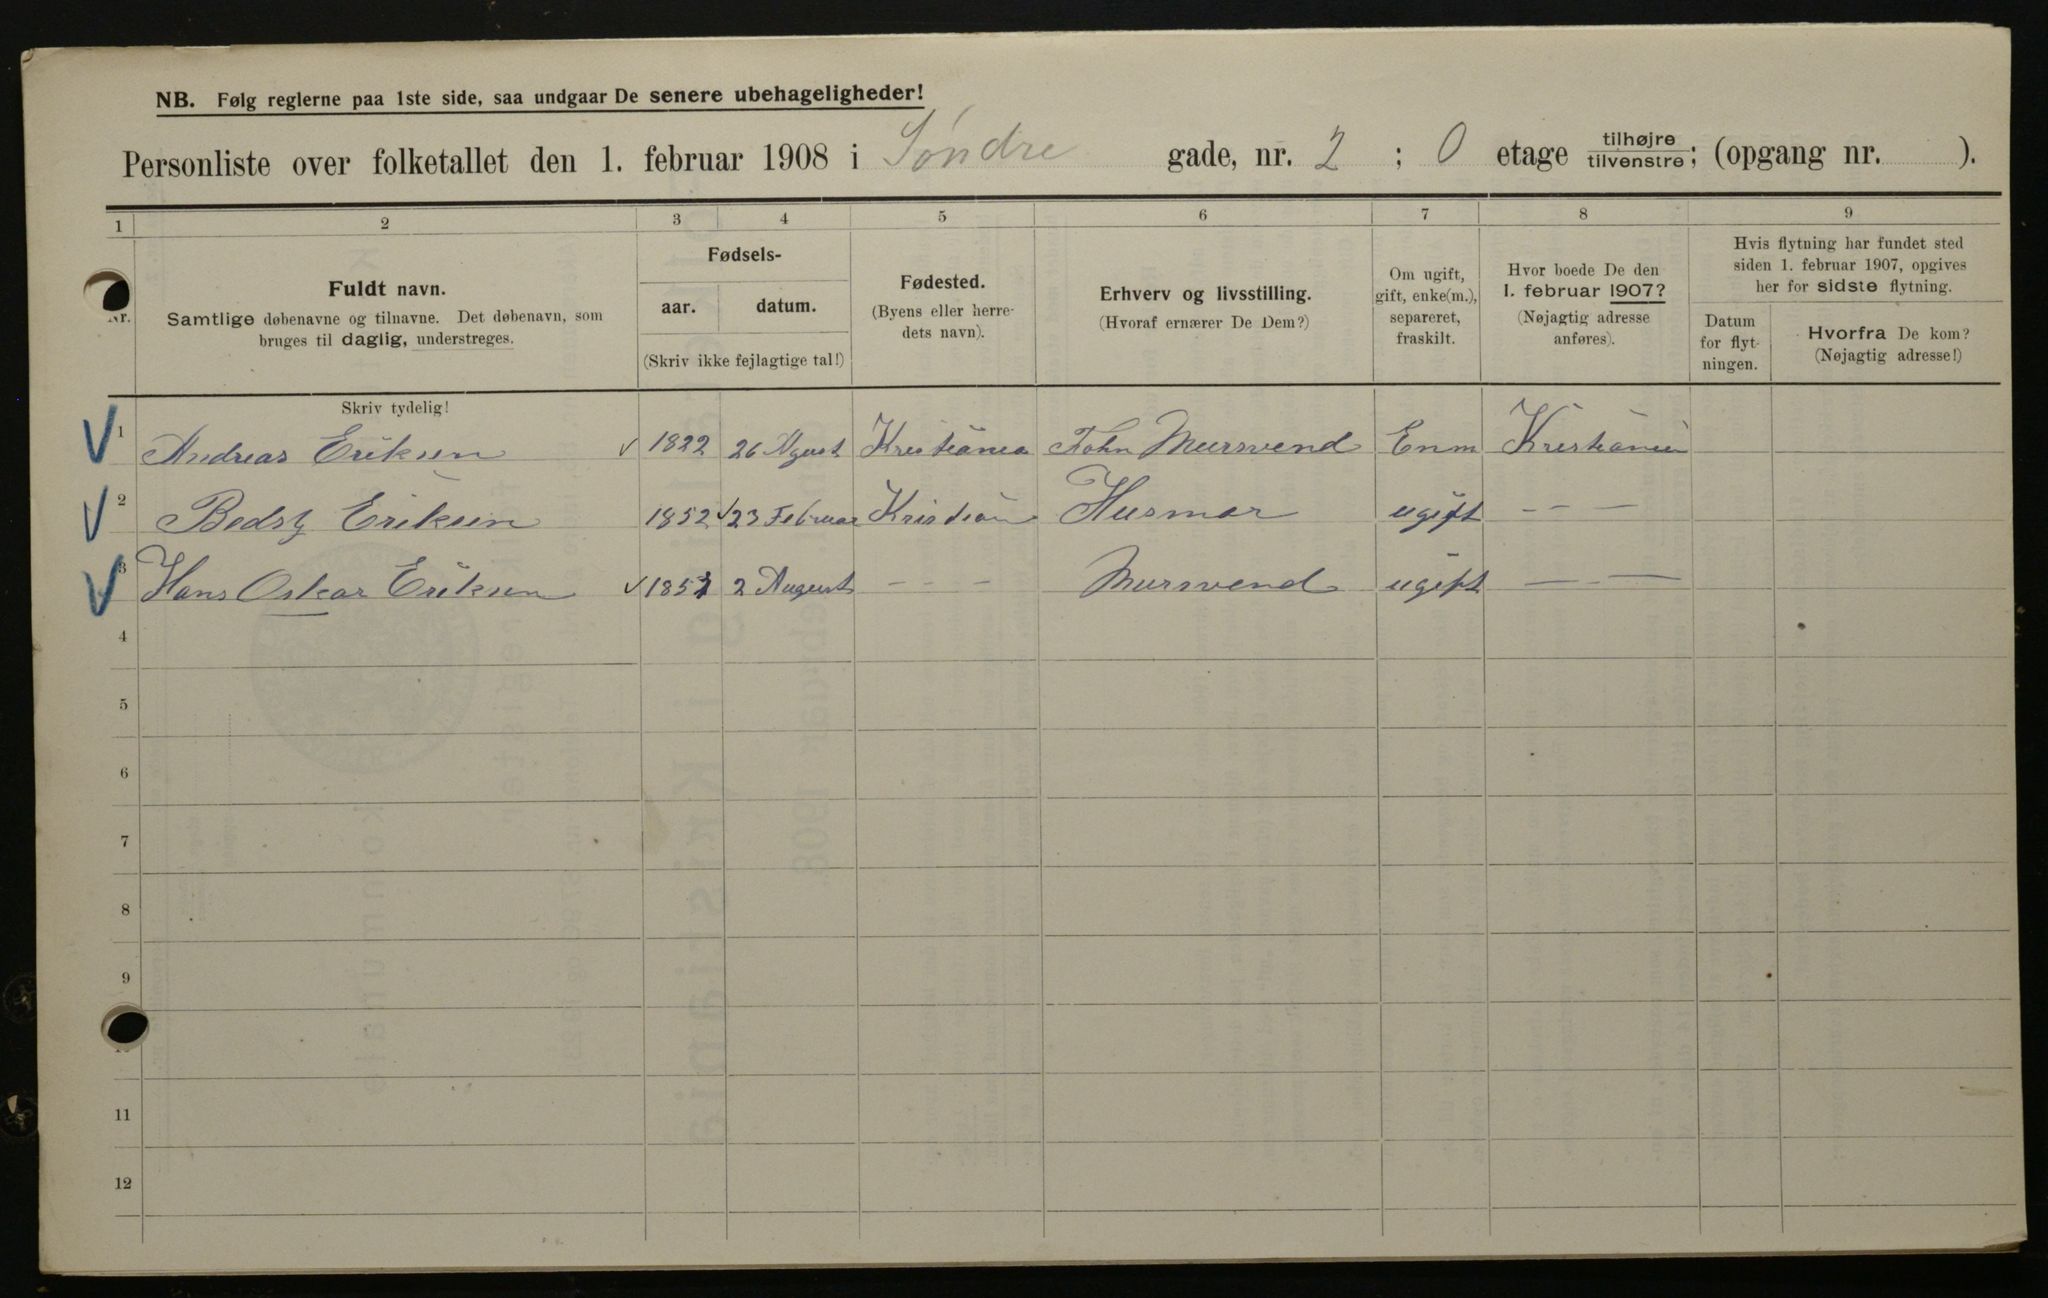 NB. Følg reglerne paa 1ste side, saa undgaar De senere ubehageligheder!
Personliste over folketallet den 1. februar 1908 i Søndre gade, nr. 2 ; 0 etage tilhøjre/tilvenstre; (opgang nr. ).
1 2 3 4 5 6 7 8 9
Nr.
Fuldt navn.
Samtlige døbenavne og tilnavne. Det døbenavn, som
bruges til daglig, understreges.
Fødsels-
aar. datum.
(Skriv ikke fejlagtige tal!)
Fødested.
(Byens eller herre-
dets navn).
Erhverv og livsstilling.
(Hvoraf ernærer De Dem?)
Om ugift,
gift, enke(m.),
separeret,
fraskilt.
Hvor boede De den
1. februar 1907?
(Nøjagtig adresse
anføres).
Hvis flytning har fundet sted
siden 1. februar 1907, opgives
her for sidste flytning.
Datum
for flyt-
ningen.
Hvorfra De kom?
(Nøjagtig adresse!)
Skriv tydelig!
1 Andreas Eriksen 1822 26 Agust Kristiania Mursvend Enm Kristiania
2 Bedsy Eriksen 1852 23 Februar Kristian Husmor ugift - - -
3 Hans Oskar Eriksen 2 August - - - Mursvend ugift - - -
4
5
6
7
8
9
11
12